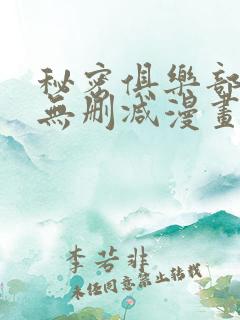 秘密俱樂部
無刪減漫畫
李若非
未经同意禁止转载